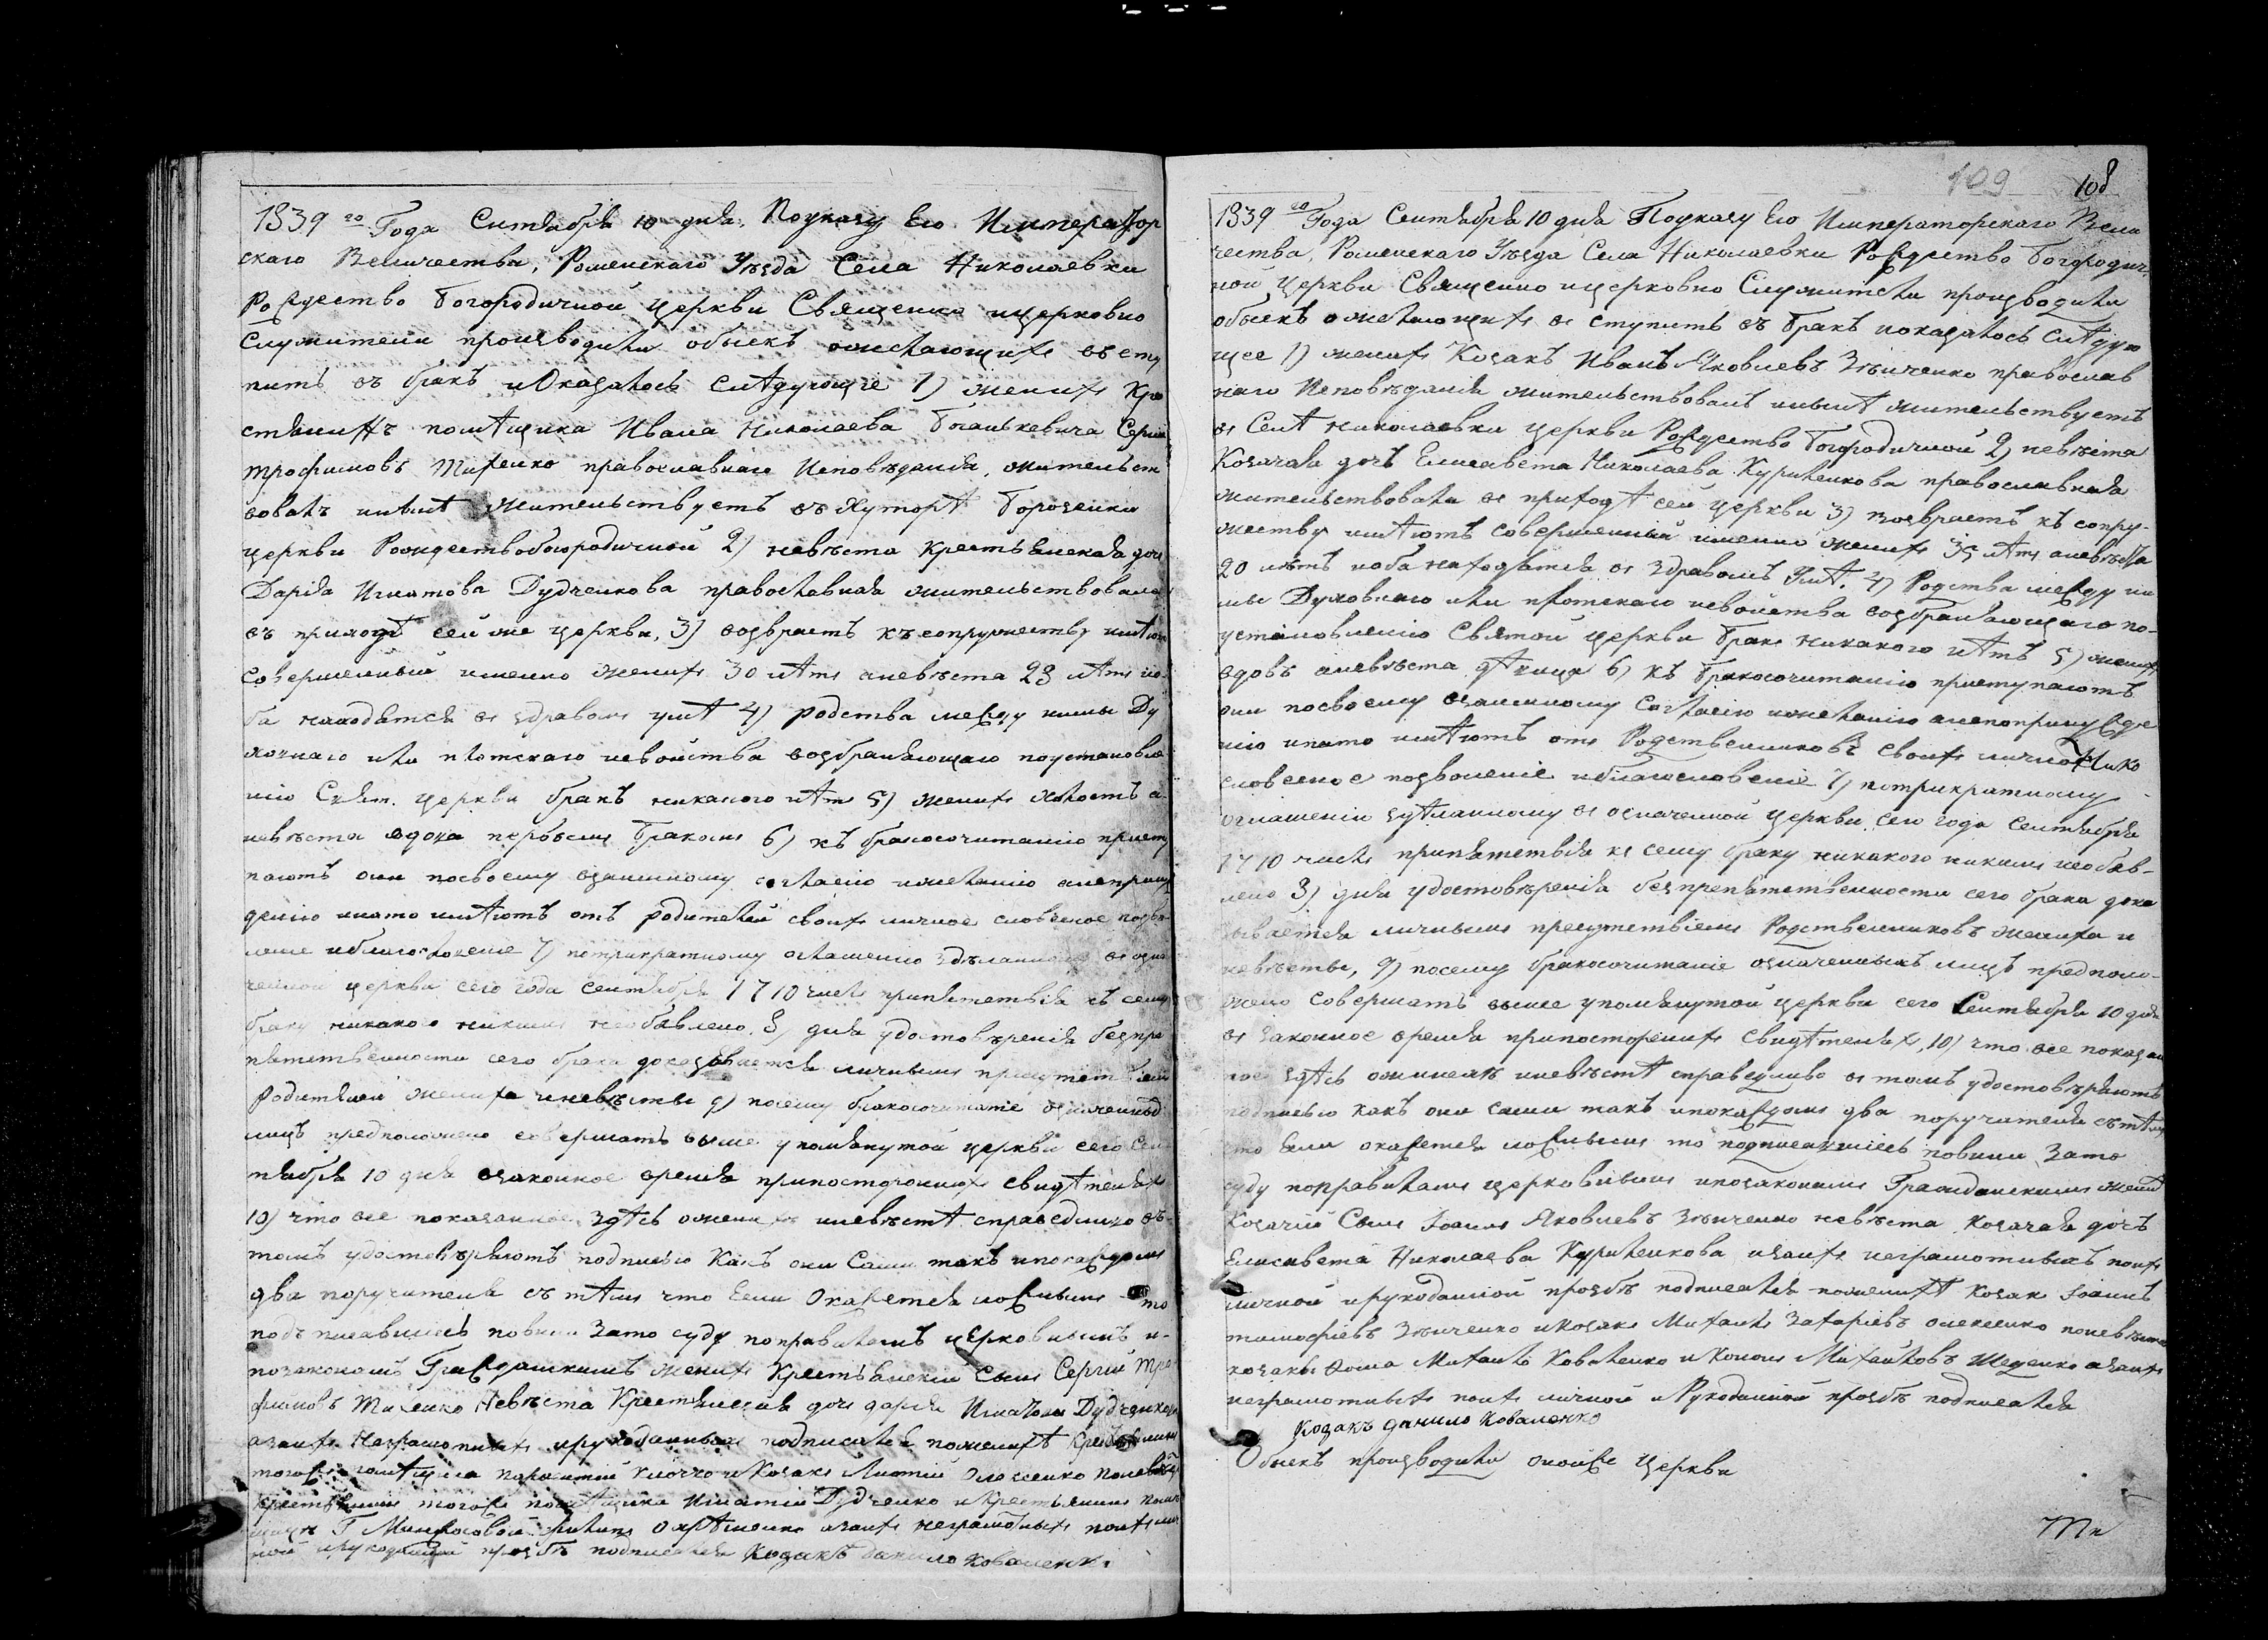 1839 го Года Сентября 10 дня. Поуказу Его Император
скаго Величества, Роменскаго Уѣзда Села Николаевки
Рождество Богородичной церкви Священно ицерковно
Служители производили обыскъ ожелающихъ въсту
пить въ бракъ иОказалось Слѣдующее 1) женихъ Кре
стянинъ помѣщика Ивана Николаева Сергій
Трофимовъ православнаго Исповѣданія, жительст
вовалъ инынѣ жительствуетъ въ Хуторѣ
церкви Рождествобогородичной 2) невѣста крестьянская дочь
Дарія Игнатова Дудченкова православная жительствовала
въ приходѣ сей же церкви, 3) возврастъ къ сопружеству имѣютъ
Совершенный именно женихъ 30 лѣтъ аневѣста 23 лѣтъ ио
ба находятся въ здравомъ умѣ 4) родства между ними Ду
ховнаго или плотскаго исвойства возбраняющаго поустановле
нію Свят. церкви бракъ никакого нѣтъ 5) женихъ холостъ а
невѣста вдова первымъ бракомъ 6) къ бракосочитанію присту
паютъ они посвоему взаимному согласію ижеланію анеприну
денію инато имѣютъ отъ родителей своихъ личное словесное позво
леніе иблагословеніе 7) потрикратному оглашенію здѣланному въ озна
ченной церкви сего года Сентября 1 7 10 числъ препятствія къ сему
браку никакого никимъ необявлено. 8) для удостовѣренія безпре
пятственности сего брака доказывается личнымъ присутствіемъ
Родителей жениха иневѣсты 9) посему бракосочитаніе означенныхъ
лицъ предположено совершать выше упомянутой церкви сего Сен
тября 10 дня взаконное время припостороннихъ свидѣтеляхъ
10) что все показанное здѣсь оженихѣ иневѣстѣ справедливо въ
томъ удостовѣряютъ подписью Какъ они Сами такъ ипокаждомъ
два поручителя съ тѣмъ что Если Окажется ложнымъ то
подъписавшіесь повинны Зато суду поправиламъ церковнымъ и
позаконамъ Гражданскимъ женихъ Крестьянскій Сынъ Сергій Тро
фимовъ Невѣста Крестянская дочь дарія Игнатова Дудченкова
азанихъ Неграмотныхъ ирукоданныхъ подписался поженихѣ Крестьянинъ
тогожъ помѣщика иКозакъ поневѣстѣ
крестянинъ тогожъ помѣщика Игнатій Дудченко иКрестьянинъ помѣ
азанихъ неграмотныхъ поихъ лич
ной ирукоданной прозбѣ подписался Козакъ данило коваленко

109 108
1839 го Года Сентября 10 дня Поуказу Его Императорскаго Вели
чества, Роменскаго Уѣзда Села Николаевки Рождество Богородич
ной церкви Священно ицерковно Служители производили
обыскъ ожелающихъ въ ступить въ бракъ иоказалось Слѣдую
щее 1) женихъ Козакъ Иванъ Яковлевъ Зѣнченко православ
наго Исповѣданія жительствовалъ инынѣ жительствуетъ
въ Селѣ николаевки церкви Рождество Богородичной 2) невѣста
Козачая дочь Елисавета Николаева Куриленкова православная
жительствовала въ приходѣ сей церкви 3) возврастъ къ сопру-
жеству имѣютъ совершенный именно женихъ 35 лѣтъ аневѣста
20 лѣтъ иоба находятся въ здравомъ Умѣ. 4) Родства между ни
мы Духовнаго или плотскаго исвойства возбраняющаго по-
установленію Святой церкви бракъ никакого нѣтъ 5) женихъ
вдовъ аневѣста дѣвица 6) къ бракосочитанію приступаютъ
они посвоему взаимному Согласію ижеланію анепопринужде
нію инато имѣютъ отъ Родственниковъ своихъ личное
словесное позволеніе иблагословеніе 7) потрикратному
оглашенію здѣланному въ означенной церкви сего года Сентября
1 7 10 числъ припятствія къ сему браку никакого никимъ необяв-
лено 8) для удостовѣренія безпрепятственности сего брака дока
зывается личнымъ присутствіемъ Родственниковъ жениха и
невѣсты, 9) посему бракосочитаніе означенныхъ лицъ предполо-
жено совершать выше упомянутой церкви сего Сентября 10 дня
въ законное время припостороннихъ Свидѣтеляхъ, 10) что все показан
ное здѣсь оженихѣ иневѣстѣ справедливо въ томъ удостовѣряютъ
подписью какъ они сами такъ ипокаждомъ два поручителя сътѣмъ
что Если окажется ложнымъ то подписавшіесь повины Зато
суду поправиламъ церковнымъ ипозаконамъ Гражданскимъ женихъ
Козачій Сынъ Іоаннъ Яковлевъ Зѣнченко невѣста козачая дочь
Елисавета Николаева Куриленкова азанихъ неграмотныхъ поихъ
личной ирукоданной прозбѣ подписался поженихѣ козакъ Іоаннъ
тимофѣевъ Зѣнченко иКозакъ Михаилъ Захаріевъ олексенко поневѣстѣ
козакъ Фома Михаилъ Коваленко иКононъ Михайловъ азанихъ
неграмотныхъ поихъ личной иРукоданной прозбѣ подписался
Козакъ данило коваленко
Обыскъ производили онойже Церкви